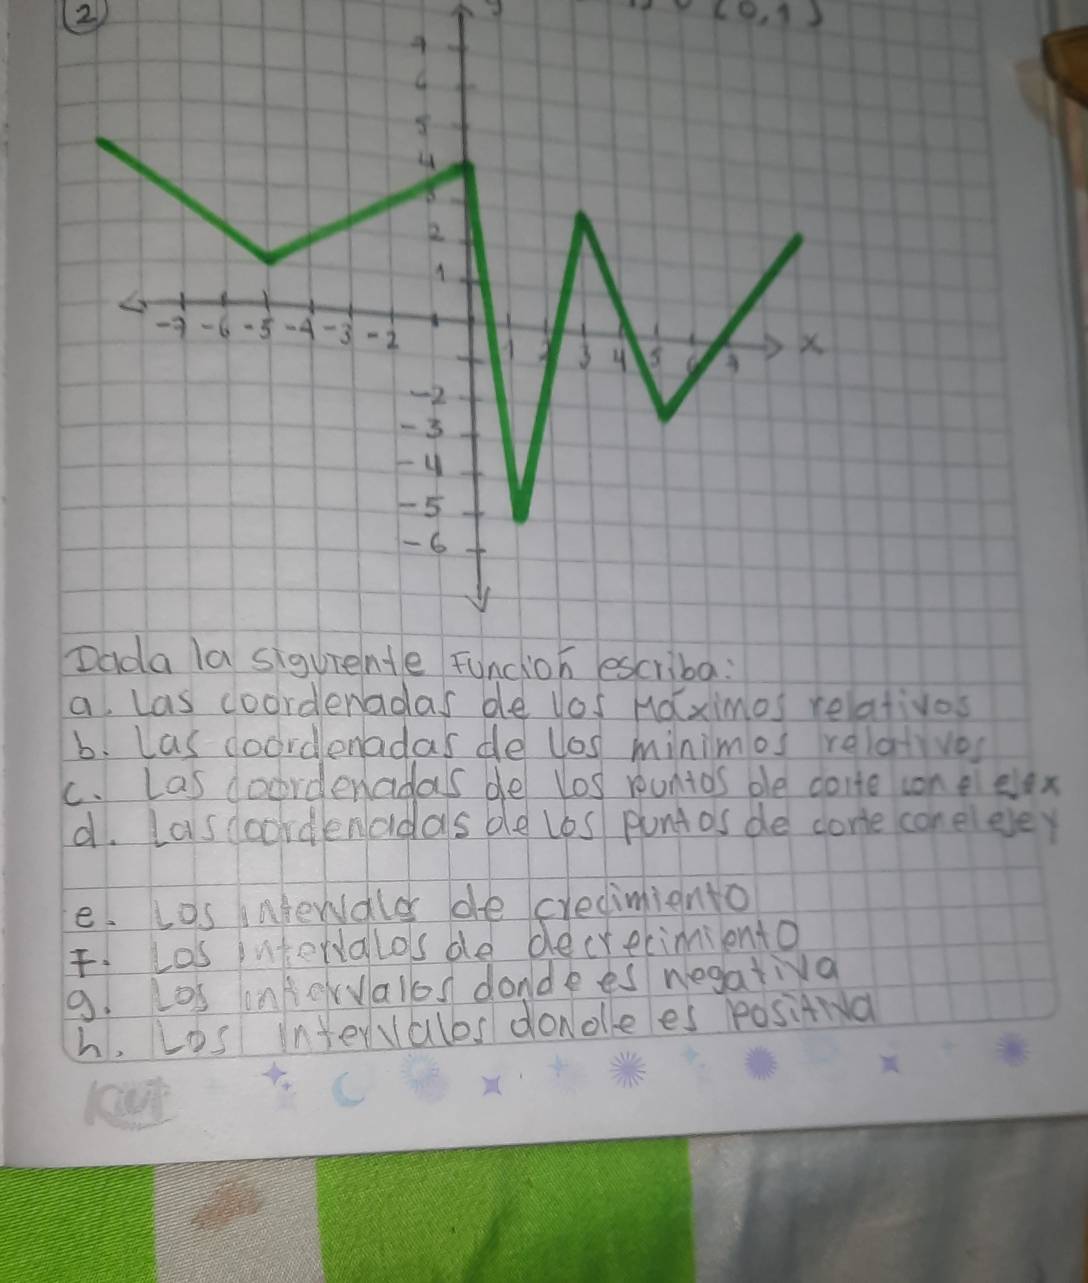 2
y
(0,1)
7
6
5
4
3
2
1
-7 -6 -5 -4 -3 -2 1 2 3 4 5 6 7 x
-2
-3
-4
-5
-6
Dada la siguiente Función escriba:
a. Las coordenadas de los Máximos relativos
b. Las coordenadas de los minimos relativos
c. Las coordenadas de los puntos de corte con el eje x
d. Las coordenadas de los puntos de corte con el eje y
e. Los intervalos de crecimiento
F. Los intervalos de decrecimiento
g. Los intervalos donde es negativa
h. Los intervalos donde es positiva